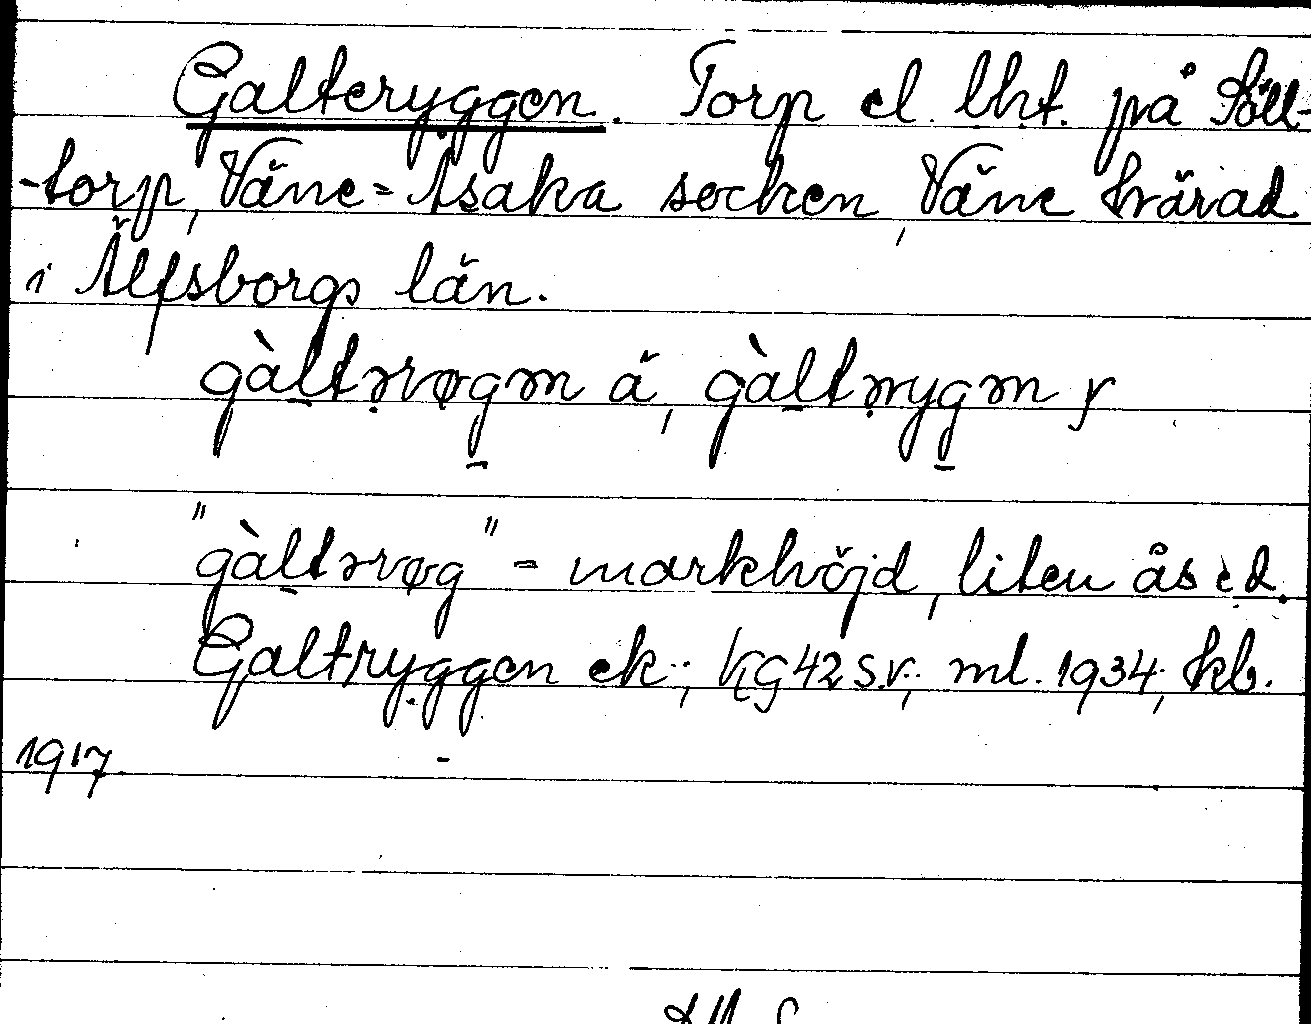 Galteryggen. Torp el. lht. på Söll-
-torp, Väne-Åsaka socken, Väne härad
i Älfsborgs län.
gàltərøgən ä, gàltərygən y
"gàltərøg" - markhöjd, liten ås e d.
Galtryggen ek.; KG42 s.v.; ml. 1934; kb.
1917